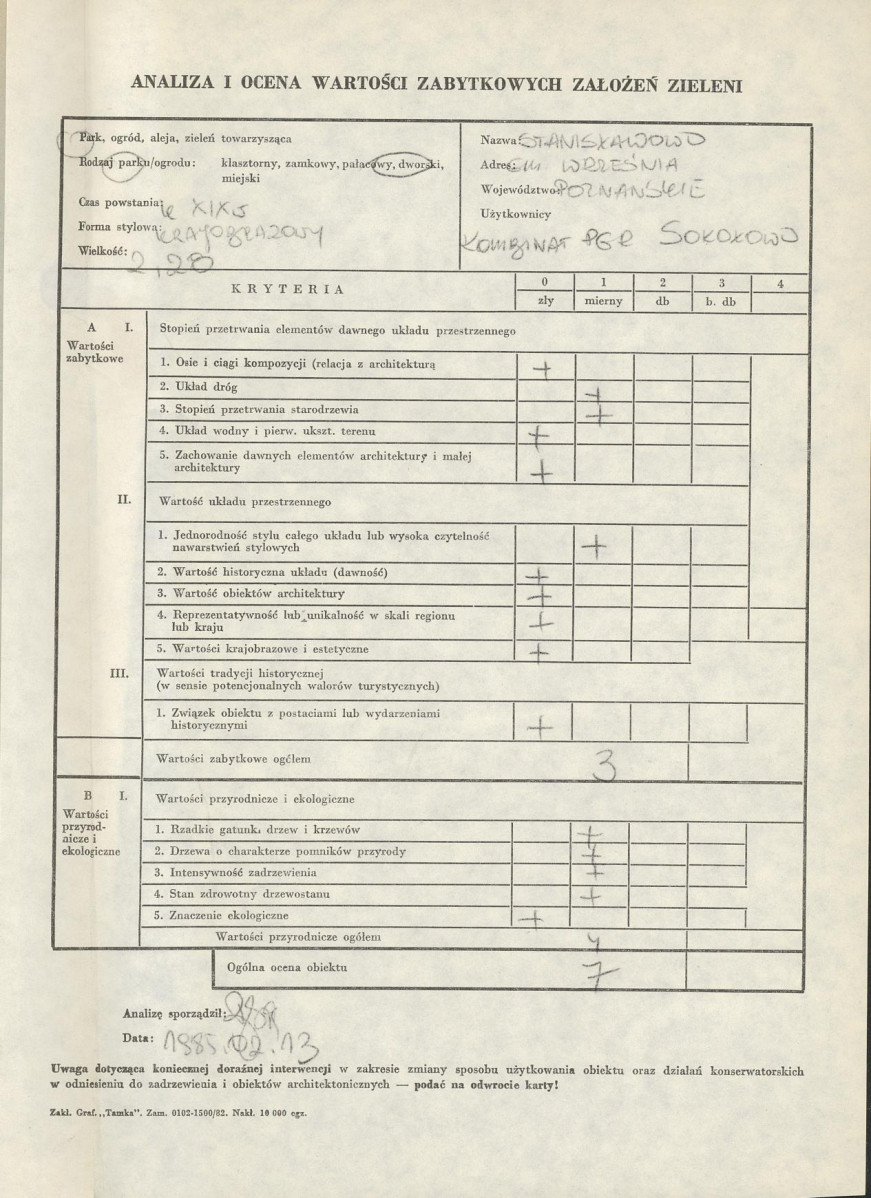 ANALIZA I OCENA WARTOŚCI ZABYTKOWYCH ZAŁOŻEŃ ZIELENI
Park, ogród, aleja, zieleń towarzysząca
Rodzaj parku/ogrodu: klasztorny, zamkowy, pałacowy, dworski,
miejski
Czas powstania: k. XIX w
Forma stylowa: KRAJOBRAZOWY
Wielkość: 2,28
Nazwa: STANISŁAWOWO
Adres: GM. WRZEŚNIA
Województwo: POZNAŃSKIE
Użytkownicy
KOMBINAT PGR SOKOŁOWO
KRYTERIA
0 1 2 3 4
zły mierny db b. db
A I. Stopień przetrwania elementów dawnego układu przestrzennego
Wartości
zabytkowe
1. Osie i ciągi kompozycji (relacja z architekturą +
2. Układ dróg +
3. Stopień przetrwania starodrzewia +
4. Układ wodny i pierw. ukszt. terenu +
5. Zachowanie dawnych elementów architektury i małej
architektury +
II. Wartość układu przestrzennego
1. Jednorodność stylu całego układu lub wysoka czytelność
nawarstwień stylowych +
2. Wartość historyczna układu (dawność) +
3. Wartość obiektów architektury +
4. Reprezentatywność lub unikalność w skali regionu
lub kraju +
5. Wartości krajobrazowe i estetyczne +
III. Wartości tradycji historycznej
(w sensie potencjonalnych walorów turystycznych)
1. Związek obiektu z postaciami lub wydarzeniami
historycznymi +
Wartości zabytkowe ogółem 3
B I. Wartości przyrodnicze i ekologiczne
Wartości
przyrod-
nicze i
ekologiczne
1. Rzadkie gatunki drzew i krzewów +
2. Drzewa o charakterze pomników przyrody +
3. Intensywność zadrzewienia +
4. Stan zdrowotny drzewostanu +
5. Znaczenie ekologiczne +
Wartości przyrodnicze ogółem 4
Ogólna ocena obiektu 7
Analizę sporządził:
Data: 1985.02.13
Uwaga dotycząca koniecznej doraźnej interwencji w zakresie zmiany sposobu użytkowania obiektu oraz działań konserwatorskich
w odniesieniu do zadrzewienia i obiektów architektonicznych — podać na odwrocie karty!
Zakł. Graf. „Tamka". Zam. 0102-1500/82. Nakł. 10 000 egz.